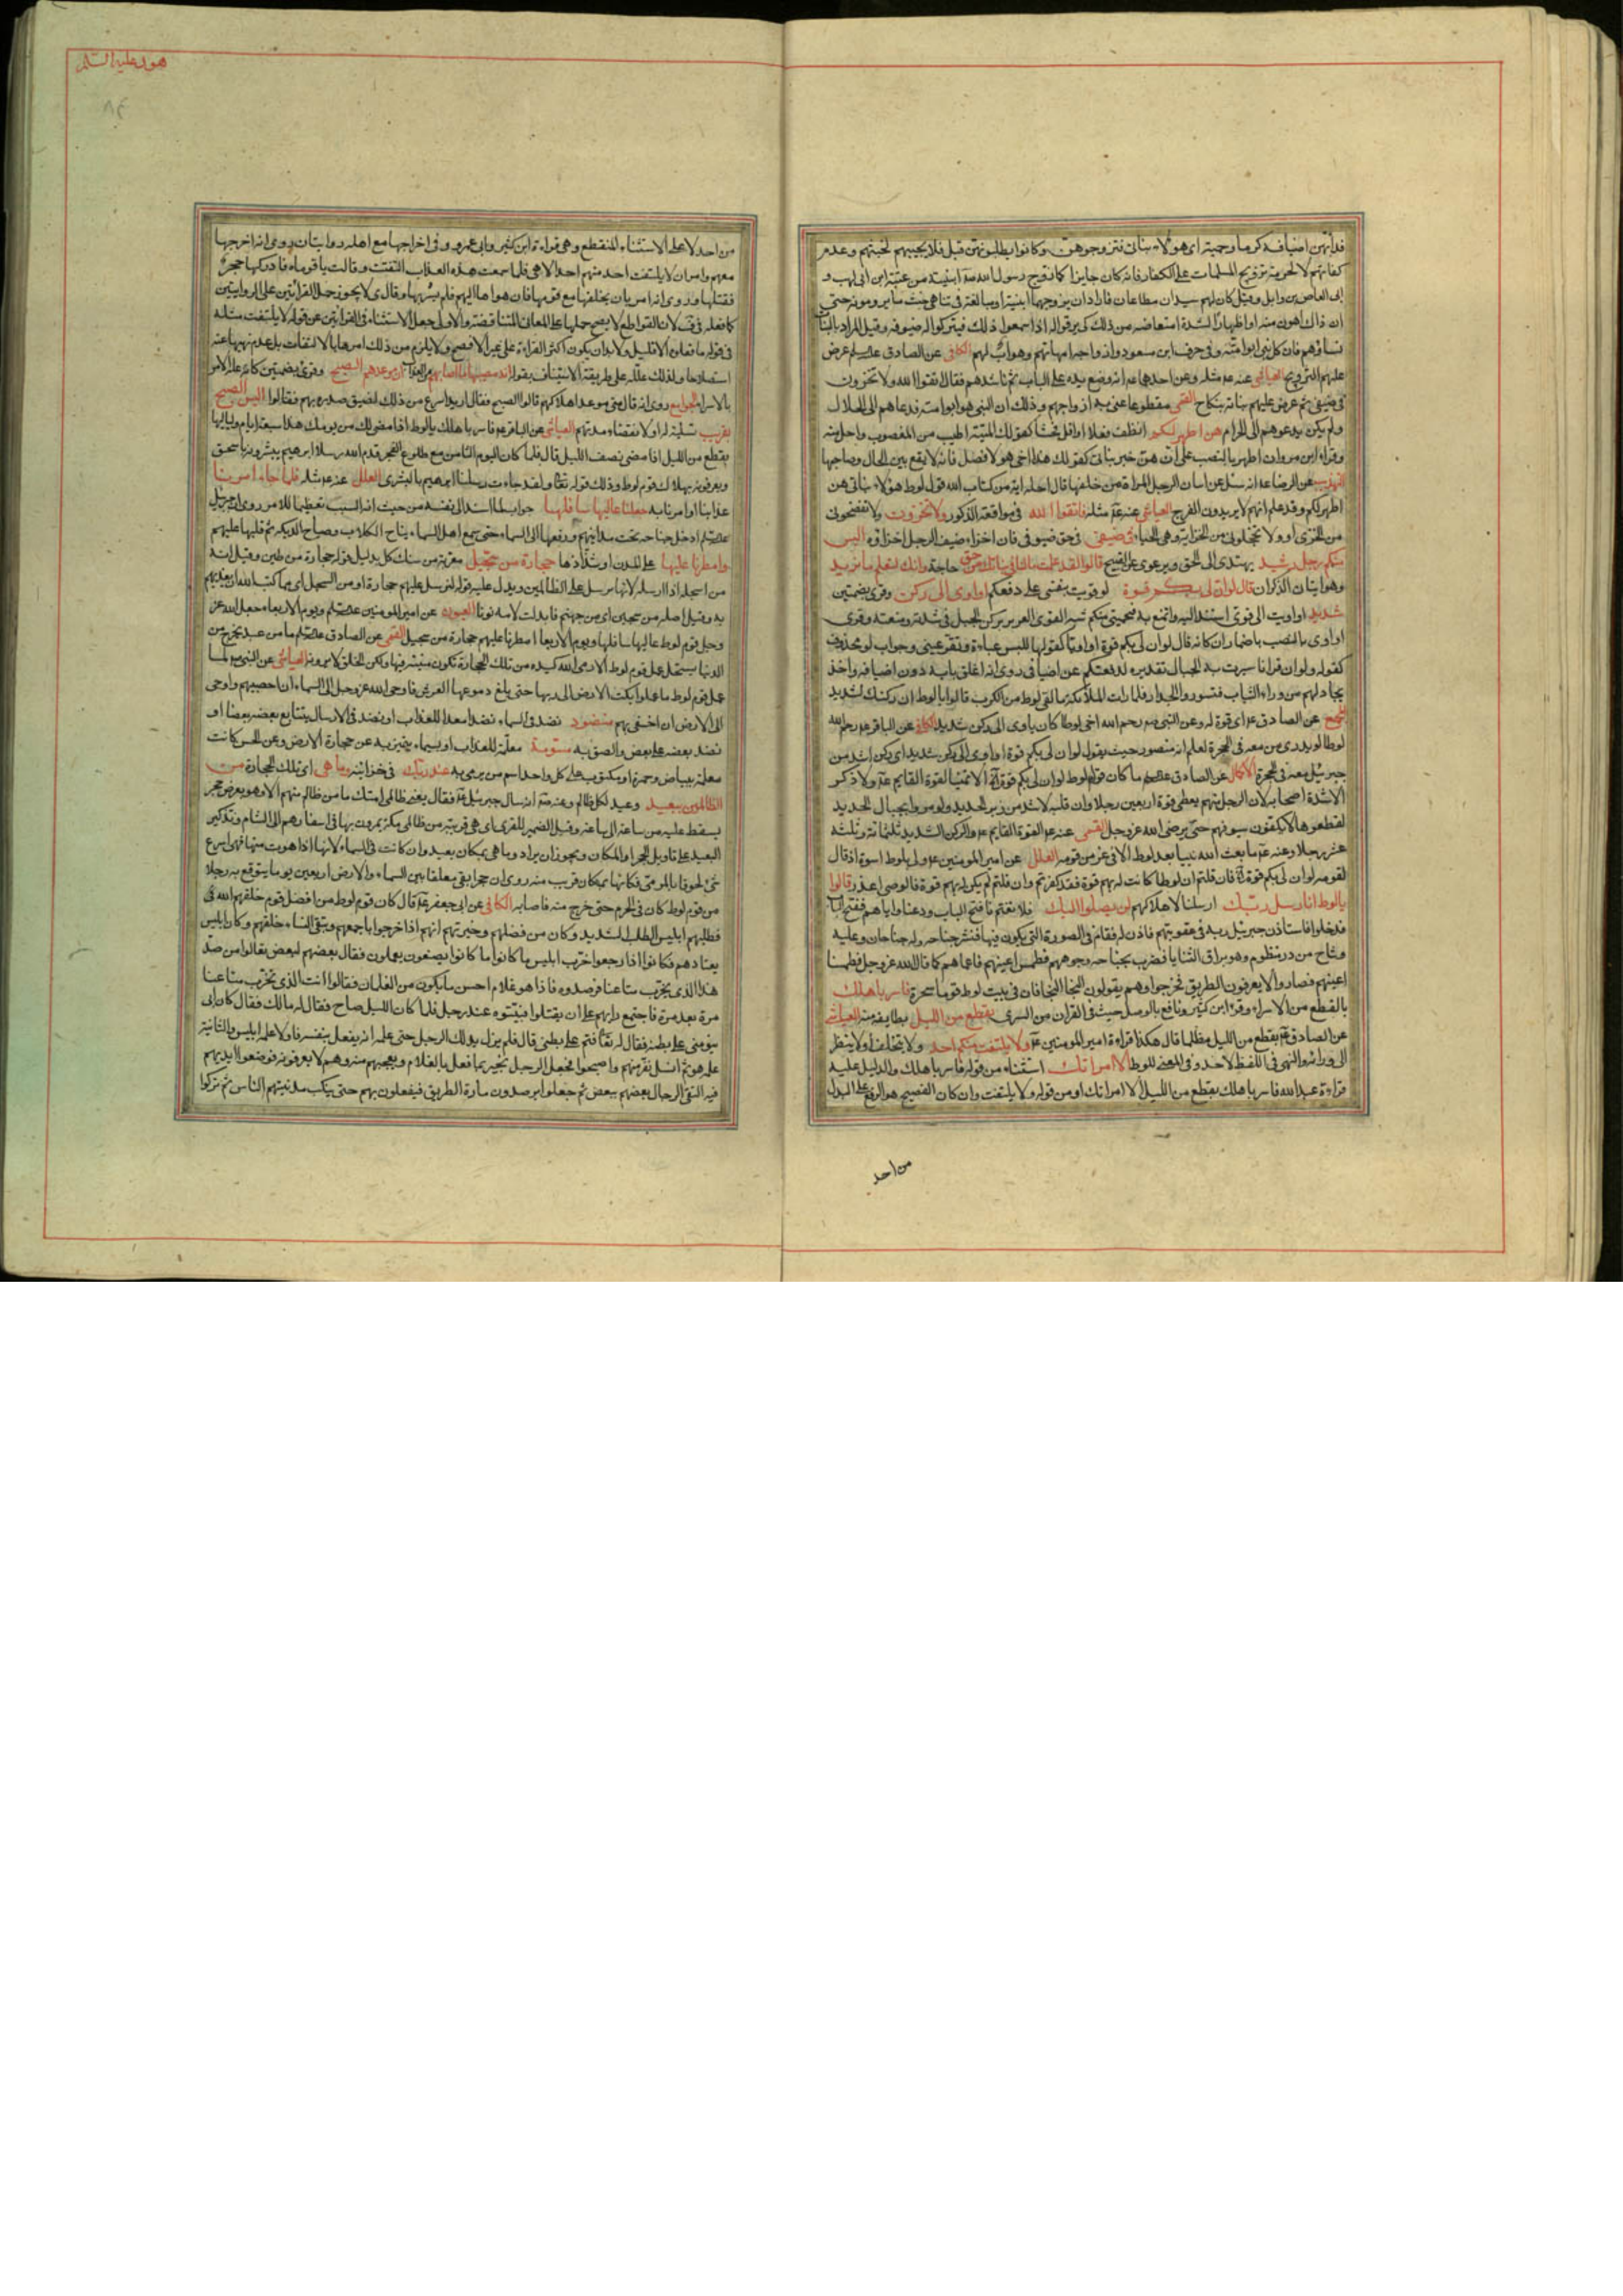 هود عليه السلم
فداء بهن اضيافه كرما وحمية اى هؤلاء بناتى فتزوجوهن وكانوا يطلبونهن قبل فلا يجيبهم لخبثهم وعدم
كفائتهم لا لحرمة تزويج المسلمات على الكفار فانه كان جايزا كما زوج رسول الله ابنيته من عتبة ابن ابى لهب و
ابى العاص بن وابل وقيل كان لهم سيدان مطاعان فاراد ان يزوجهما ابنتيه او مبالغة فى تناهى خبث ما يرومونه حتى
ان ذلك اهون منه او اظهارا لشدة امتعاضه من ذلك كى يرقوا له اذا سمعوا ذلك فيتركوا له ضيوفه وقيل المراد بالبنات
نساؤهم فان كل نبى ابو امته وفى حرف ابن مسعود وازواجه امهاتهم وهو اب لهم الكافى عن الصادق عرض
عليهم التزويج العياشى عنه مثله وعن احدهما انه وضع يده على الباب ثم ناشدهم فقال اتقوا الله ولا تخزون
فى ضيفى ثم عرض عليهم بناته بنكاح القمى عنى به ازواجهم وذلك ان النبى هو ابو امته فدعاهم الى الحلال
ولم يكن يدعوهم الى الحرام هن اطهر لكم انظف فعلا او اقل فحشا كقولك الميتة اطيب من المغصوب واحل منه
وقراء ابن مروان اطهر بالنصب على ان هن خبر بناتى كقولك هذا اخى هو لا فصل فانه لا يقع بين الحال وصاحبها
التهذيب عن الرضا انه سئل عن اتيان الرجل المراة من خلفها قال احلها اية من كتاب الله قول لوط هؤلاء بناتى هن
اطهر لكم وقد علم انهم لا يريدون الفرج العياشى عنه مثله فاتقوا الله فى مواقعة الذكور ولا تخزون ولا تفضحونى
من الخزى او ولا تخجلونى من الخزاية وهى الحياء فى ضيفى فى حق ضيوفى فان اخزاء ضيف الرجل اخزاؤه اليس
منكم رجل رشيد يهتدى الى الحق ويرعوى عن القبيح قالوا لقد علمت ما لنا فى بناتك من حق حاجة وانك لتعلم ما نريد
وهو اتيان الذكران قال لو ان لى بكم قوة لو قويت بنفسى على دفعكم او اوى الى ركن وقرئ بضمتين
شديد او اويت الى قوى استند اليه واتمنع به فيحمينى منكم شبه القوى العزيز بركن الجبل فى شدته ومنعته وقرى
او اوى بالنصب باضمار ان كانه قال لو ان لى بكم قوة او اويا كقولها للبس عباءة وتقر عينى وجواب لو محذوف
كقوله ولو ان قرانا سيرت به الجبال تقديره لدفعتكم عن اضيافى روى انه اغلق بابه دون اضيافه واخذ
يجادلهم من وراء الباب فتسوروا الجدار فلما رات الملائكة ما لقى لوط من الكرب قالوا يا لوط ان ركنك لشديد
عن الصادق اى قوة له وعن النبى رحم الله اخى لوطا كان ياوى الى ركن شديد الكافى عن الباقر رحم الله
لوطا لو يدرى من معه فى الحجرة لعلم انه منصور حيث يقول لو ان لى بكم قوة او اوى الى ركن شديد اى ركن اشد من
جبرئيل معه فى الحجرة الاكمال عن الصادق ما كان قول لوط لو ان لى بكم قوة الا تمنيا لقوة القايم ولا ذكر
الا شدة اصحابه لان الرجل منهم يعطى قوة اربعين رجلا وان قلبه لاشد من زبر الحديد ولو مروا بجبال الحديد
لقطعوها لا يكفون سيوفهم حتى يرضى الله عز وجل القمى عنه القوة القايم والركن الشديد ثلثمائة وثلثة
عشر رجلا وعنه ما بعث الله نبيا بعد لوط الا فى عز من قومه العلل عن امير المومنين ولى بلوط اسوة اذ قال
لقومه لو ان لى بكم قوة فان قلتم ان لوطا كانت له بهم قوة فقد كفرتم وان قلتم لم يكن له بهم قوة فالوصى اعذر قالوا
يا لوط انا رسل ربك ارسلنا لاهلاكهم لن يصلوا اليك فلا تغتم فافتح الباب ودعنا واياهم ففتح الباب
فدخلوا فاستاذن جبرئيل ربه فى عقوبتهم فاذن له فقام فى الصورة التى يكون فيها فنشر جناحه وله جناحان وعليه
وشاح من در منظوم وهو براق الثنايا فضرب بجناحه وجوههم فطمس اعينهم فاعماهم كما قال الله عز وجل فطمسنا
اعينهم فصاروا لا يعرفون الطريق فخرجوا وهم يقولون النجا النجا فان فى بيت لوط قوما سحرة فاسر باهلك
بالقطع من الاسراء وقرء ابن كثير ونافع بالوصل حيث فى القران من السرى بقطع من الليل بطايفة منه العياشى
عن الصادق بقطع من الليل مظلما قال هكذا قراءة امير المومنين ولا يلتفت منكم احد ولا يتخلف او لا ينظر
الى ورائه والنهى فى اللفظ لاحد وفى المعنى للوط الا امراتك استثناء من قوله فاسر باهلك والدليل عليه
قراءة عبد الله فاسر باهلك بقطع من الليل الا امراتك او من قوله ولا يلتفت وان كان الفصيح هو الرفع على البدل
من احد
من احد لا على الاستثناء المنقطع وهى قراءة ابن كثير وابى عمرو وفى اخراجها مع اهله روايتان روى انه اخرجها
معهم وامر ان لا يلتفت احد منهم احد الا هى فلما سمعت هذه العذاب التفتت وقالت يا قوماه فادركها حجر
فقتلها وروى انه امر بان يخلفها مع قومها فان هواها اليهم فلم يسر بها وقال لا يجوز حمل القرائتين على الروايتين
كما فعله فى لان القواطع لا يصح حملها على المعانى المتناقضة والاولى جعل الاستثناء فى القرائتين عن قوله لا يلتفت مثله
فى قوله ما فعلوه الا قليل ولا بعد ان يكون اكثر القراءة على غير الافصح ولا يلزم من ذلك امرها بالالتفات بل عدم نهيها عنه
استصلاحا ولذلك علله على طريقة الاستيناف بقوله انه مصيبها ما اصابهم من العذاب ان موعدهم الصبح وقرئ بضمتين كانه علة الامر
بالاسراء الجوامع روى انه قال متى موعد اهلاكهم قالوا الصبح فقال اريد اسرع من ذلك لضيق صدره بهم فقالوا اليس الصبح
بقريب العياشى عن الباقر فاسر باهلك يا لوط اذا مضى لك من يومك هذا سبعة ايام ولياليها
بقطع من الليل اذا مضى نصف الليل قال فلما كان اليوم الثامن مع طلوع الفجر قدم الله رسلا الى ابرهيم يبشرونه باسحق
ويعزونه بهلاك قوم لوط وذلك قوله تعالى ولقد جاءت رسلنا ابرهيم بالبشرى العلل عنه مثله فلما جاء امرنا
عذابنا او امرنا به جعلنا عاليها سافلها جواب لما اسند الى نفسه من حيث انه السبب تعظيما للامر روى ان جبرئيل
ادخل جناحه تحت مداينهم ورفعها الى السماء حتى سمع اهل السماء نباح الكلاب وصياح الديكة ثم قلبها عليهم
وامطرنا عليها على المدن او شذاذها حجارة من سجيل معربة من سنك كل بدليل قوله حجارة من طين وقيل انه
من اسجله اذا ارسله لانها يرسل على الظالمين ويدل عليه قوله لنرسل عليهم حجارة او من السجل اى مما كتب الله ان يعذبهم
به وقيل اصله من سجين اى من جهنم فابدلت لامه نونا العيون عن امير المومنين ويوم الاربعاء جعل الله عز
وجل قوم لوط عاليها سافلها ويوم الاربعا امطرنا عليهم حجارة من سجيل القمى عن الصادق ما من عبد يخرج من
الدنيا يستحل عمل قوم لوط الا رمى الله كبده من تلك الحجارة تكون منيته فيها ولكن الخلق لا يرونه العياشى عن النبى لما
عمل قوم لوط ما عملوا بكت الارض الى ربها حتى بلغ دموعها العرش فاوحى الله عز وجل الى السماء ان احصبيهم واوحى
الى الارض ان اخسفى بهم منضود نضد فى السماء نضدا معدا للعذاب او نضد فى الارسال يتتابع بعضه بعضا او
نضد بعضه على بعض والصق به مسومة معلمة للعذاب او بسيماء يتميز به عن حجارة الارض وعن الحسن كانت
معلمة ببياض وحمرة او يكتوب على كل واحد اسم من يرمى به عند ربك فى خزاينه وما هى اى تلك الحجارة من
الظالمين ببعيد وعيد لكل ظالم وعنه انه سال جبرئيل فقال يعنى ظالمى امتك ما من ظالم منهم الا وهو بعرض حجر
يسقط عليه من ساعة الى ساعة وقيل الضمير للقرى اى هى قريبة من ظالمى مكة يمرون بها فى اسفارهم الى الشام وتذكير
البعيد على تاويل الحجر او المكان ويجوز ان يراد وما هى بمكان بعيد وان كانت فى السماء لانها اذا هوت منها فهى اسرع
شئ لحوقا بالمرمى فكانها بمكان قريب منه روى ان حجرا بقى معلقا بين السماء والارض اربعين يوما يتوقع به رجلا
من قوم لوط كان فى الحرم حتى خرج منه فاصابه الكافى عن ابى جعفر قال كان قوم لوط من افضل قوم خلقهم الله فى
فطلبهم ابليس الطلب الشديد وكان من فضلهم وخيرتهم انهم اذا خرجوا باجمعهم وتبقى النساء خلفهم وكان ابليس
يعتادهم فكانوا اذا رجعوا خرب ابليس ما كانوا يعملون فقال بعضهم لبعض تعالوا نرصد
هذا الذى يخرب متاعنا فرصدوه فاذا هو غلام احسن ما يكون من الغلمان فقالوا انت الذى تخرب متاعنا
مرة بعد مرة فاجتمع رايهم على ان يقتلوه فبيتوه عند رجل فلما كان الليل صاح فقال له مالك فقال كان ابى
ينومنى على بطنه فقال له تعال فنم على بطنى قال فلم يزل يدلك الرجل حتى علمه انه يفعل بنفسه فاولا علمه ابليس والثانية
علمه هو ثم انسل ففر منهم واصبحوا فجعل الرجل يخبر بما فعل بالغلام ويعجبهم منه وهم لا يعرفونه فوضعوا ايديهم
فيه حتى اكتفى الرجال بعضهم ببعض ثم جعلوا يرصدون مارة الطريق فيفعلون بهم حتى ينكب مدينتهم الناس ثم تركوا